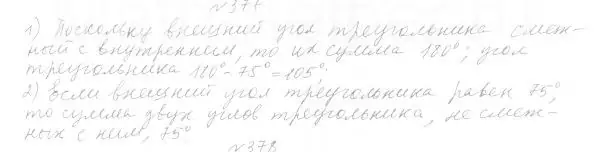 №377
1) Поскольку внешний угол треугольника смеж-
ный с внутренним, то их сумма 180°; угол
треугольника 180° - 75° = 105°;
2) Если внешний угол треугольника равен 75°,
то сумма двух углов треугольника, не смеж-
ных с ним, 75°
№378